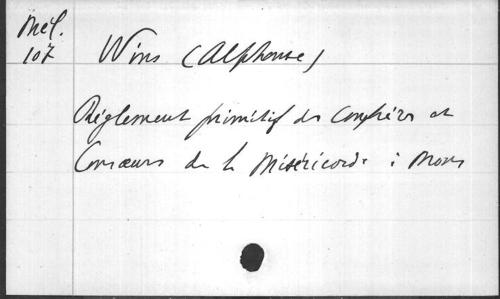 Mél.
107 Wins (Alphonse)
Règlement primitif des Confrères et
Consœurs de la Miséricorde à Mons